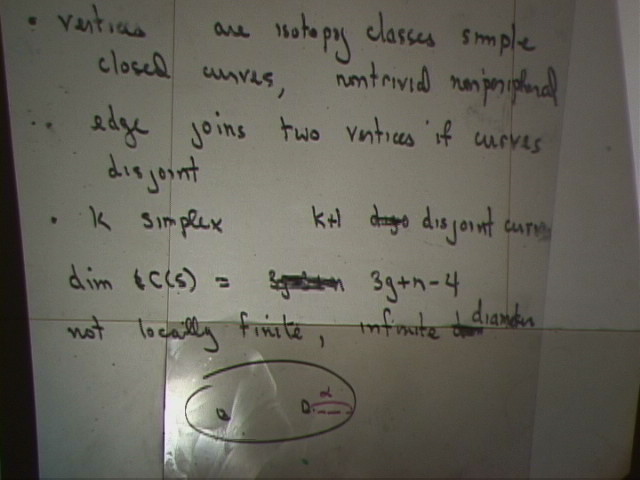 • vertices are isotopy classes simple
closed curves, nontrivial nonperipheral
•• edge joins two vertices if curves
disjoint
• k simplex k+1 disjoint curves
dim C(S) = 3g+n-4
not locally finite, infinite diameter
α